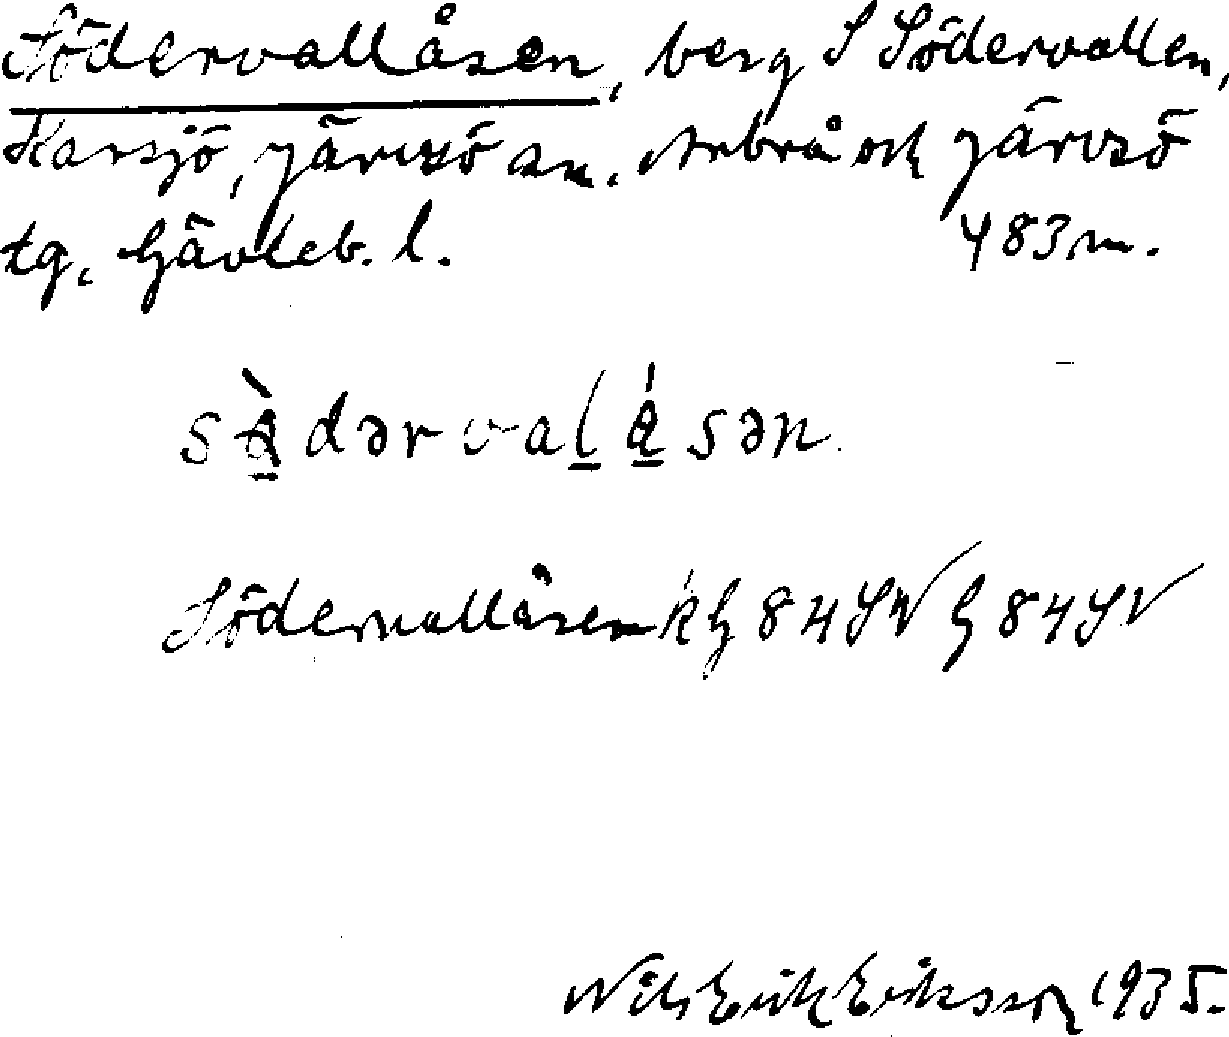 Södervallåsen, berg S Södervallen,
Karsjö, Järvsö sn. Arbrå och Järvsö
tg. Gävleb. l. 483 m.
Södervallåsen k G 84 SV G 84 SV
Nils Erik Eriksson 1935.